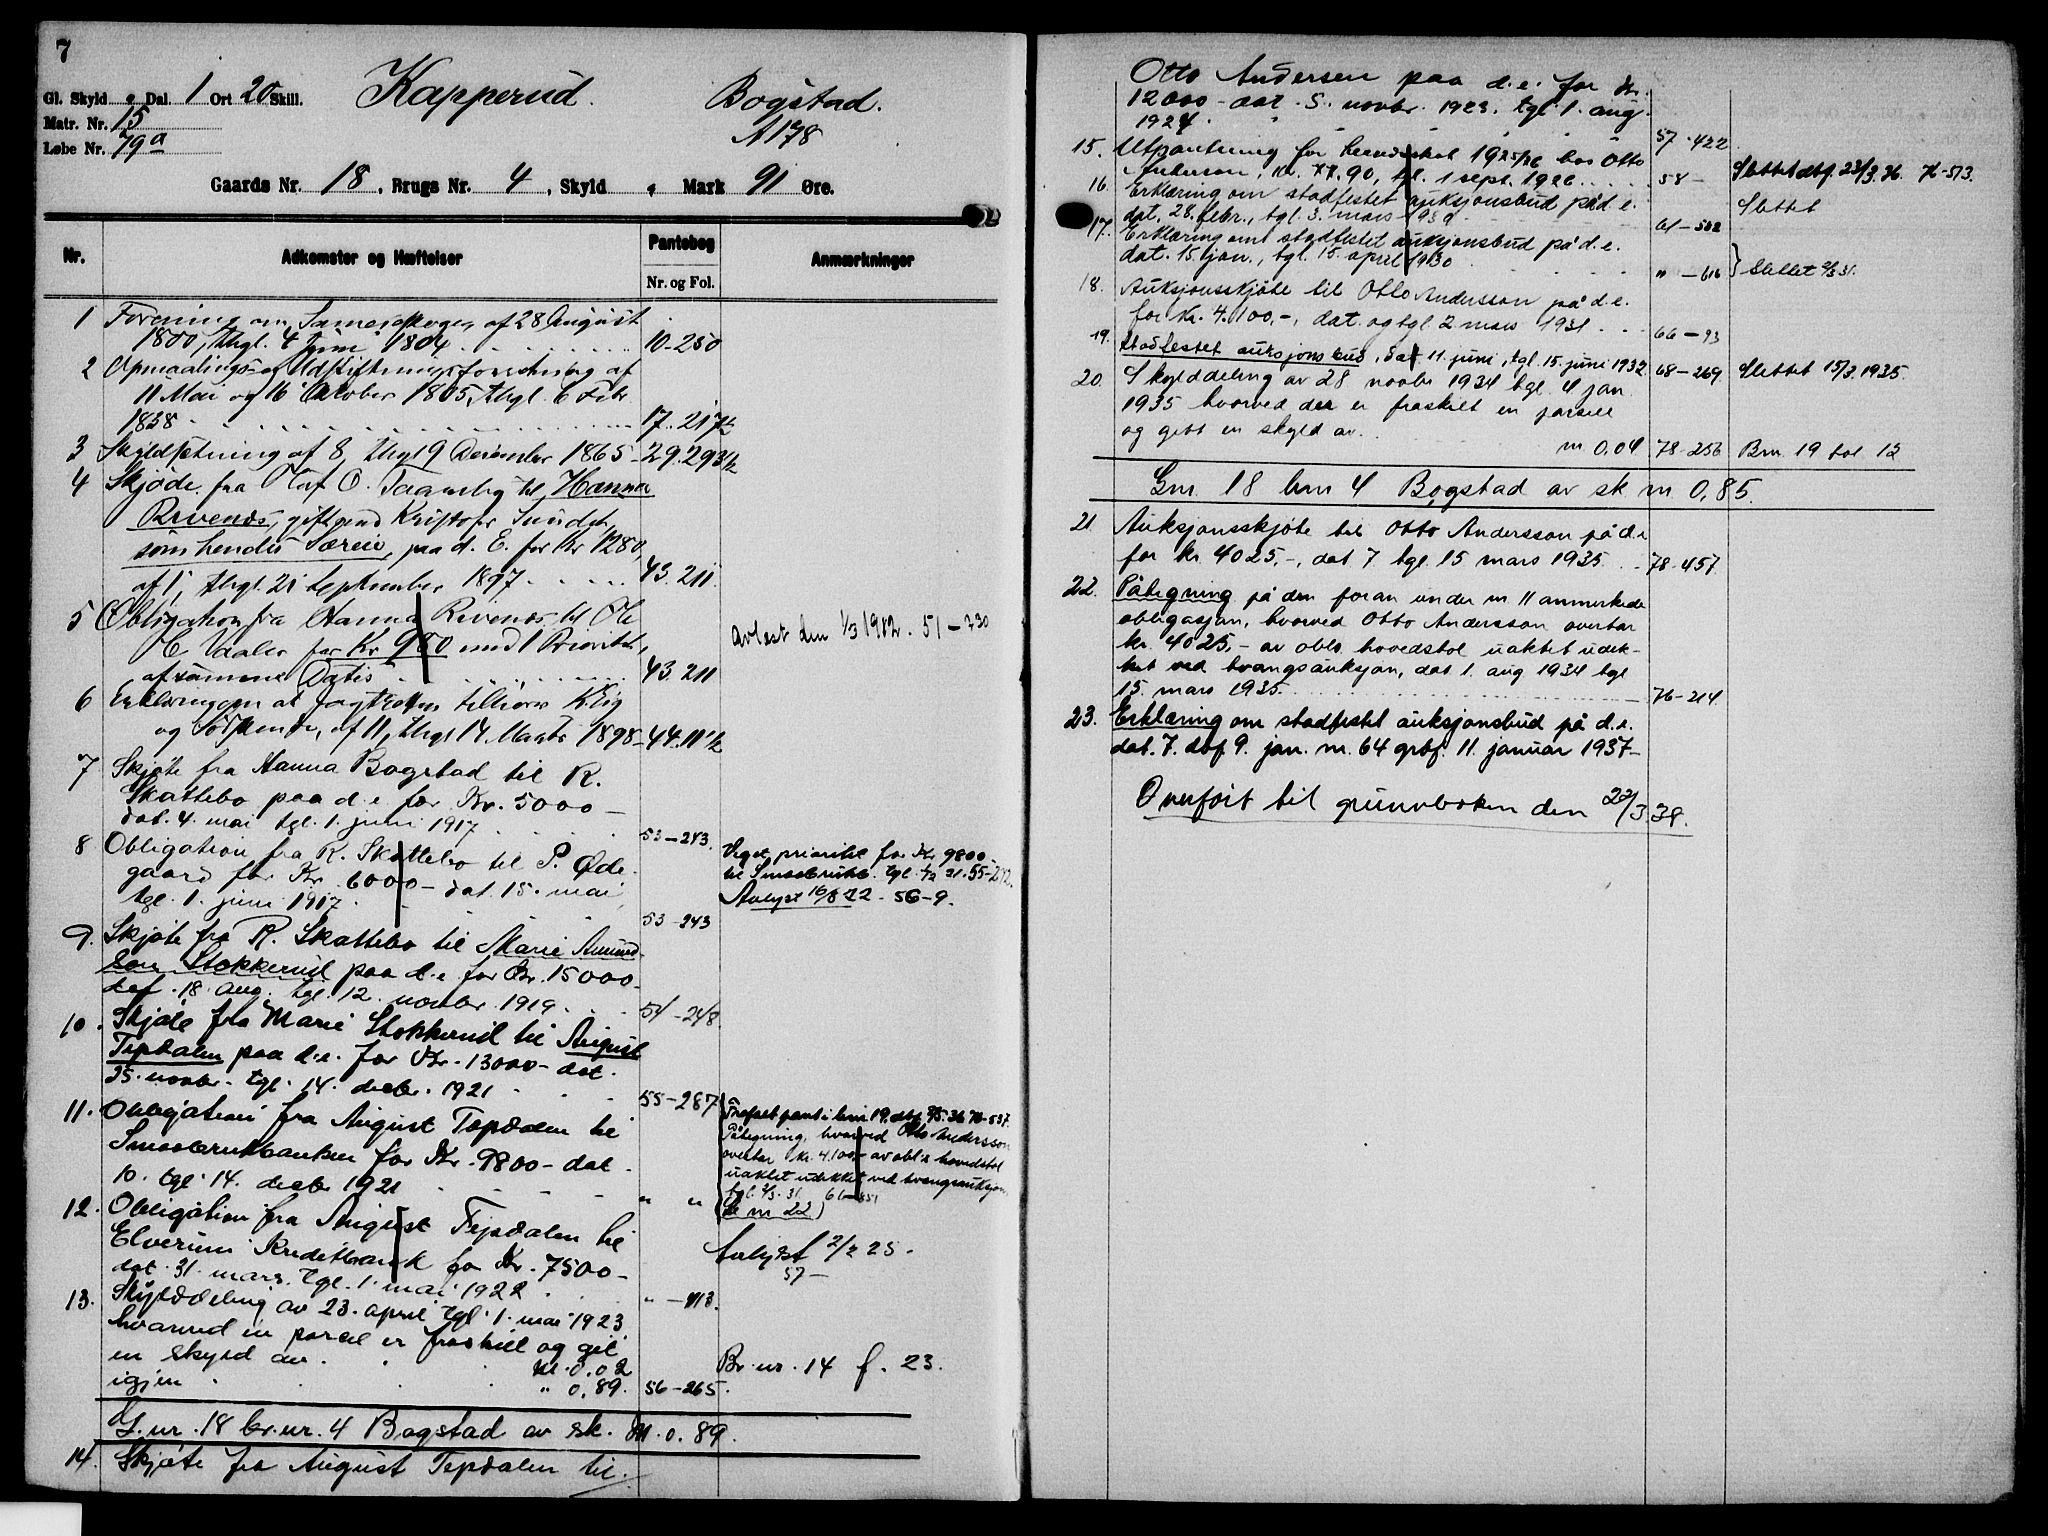 7
Gl. Skyld " Dal. 1 Ort 20 Skill. Kapperud. Bogstad.
Matr. Nr. 15 A 178
Løbe Nr. 79a
Gaards Nr. 18, Brugs Nr. 4, Skyld " Mark 91 Øre.
Nr. Adkomster og Hæftelser Pantebog Anmærkninger
Nr. og Fol.
1 Forening om Sameieskogen af 28 August
1800, thgl. 4 Juni 1804 10-250
2 Opmaalings- og Udskiftningsforretning af
11 Mai og 16 Oktober 1805, thgl. 6 Febr.
1838 17.217b
3 Skyldsætning af 8, thgl 9 December 1865 29.293b
4 Skjøde fra Olaf O. til Hanna
Rivenes, gift med Kristofer
som hendes Særeie, paa d. E. for Kr 1280,
af 1, thgl. 21 September 1897 43.211.
5 Obligation fra Hanna Rivenes til Ole
H. Vaaler for Kr 980 med 1 Prioritet,
af samme Datis 43.211
avlæst den 1/3 1912. 51-730
6 Erklæring om at jagtretten tilhører Kiig
og , af 11, thgl 14. Marts 1898 44.11b
7 Skjøte fra Hanna Bogstad til R.
Skattebo paa d.e. for Kr. 5000-
dat. 4. mai tgl. 1. juni 1917 53-243.
8 Obligation fra R. Skattebo til P. Øde-
gaard for Kr. 6000- dat. 15. mai,
tgl. 1. juni 1917. 53-243
Veget prioritet for Kr 9800-
til Smaabrukb. tgl. 21. 55-
Avlyst 16/8 22. 56-9.
9. Skjøte fra R. Skattebo til Marie Amund-
sen Stokkerud paa d.e. for Kr. 15000-
dat. 18. aug. tgl. 12. novbr. 1919. 54-248.
10. Skjøte fra Marie Stokkerud til August
Tepdalen paa d.e. for Kr. 13000- dat.
25. novbr. tgl. 14. decbr. 1921 55-287
11. Obligation fra August Tepdalen til
Smaabrukbanken for Kr. 9800- dat.
10. tgl. 14. decbr 1921 " "
Frafaldt pant i bnr 19, dbf. 36 76-537.
Påtegning, hvorved Otto Andersson
overtar kr. 4.100,- av obl's hovedstol
uaktet udekket ved tvangsauksjon,
tgl. 2/3. 31. 66-
(Se nr 22)
12. Obligation fra August Tepdalen til
Elverum Kreditbank for Kr. 7500-
dat. 31. mars. tgl. 1. mai 1922 " -413.
Avlyst 2/2 25.
57-
13. Skylddeling av 23. april tgl. 1. mai 1923
hvorved en parcel er fraskilt og git
en skyld av. M. 0.02 Br. nr. 14 f. 23.
igjen " 0,89. 56-265.
G. nr. 18 br. nr. 4 Bogstad av sk. M. 0. 89.
14. Skjøte fra August Tepdalen til.
Otto Andersen paa d.e. for kr.
12000- dat. 5. novbr. 1923. tgl. 1. aug.
1924. 57-422
15. Utpantning for herredsskat 1925/26 hos Otto
Andersen, kr. 77.90, tgl. 1 sept. 1926 58- Slettet dbf. 23/3. 36. 76-513.
16. Erklæring om stadfestet auksjonsbud på d.e.
dat. 28. febr., tgl. 3. mars 1930 61-502 Slettet
17. Erklæring om stadfestet auksjonsbud på d.e.
dat. 15. jan., tgl. 15. april 1930 " -616 } Slettet 2/3 31.
18. Auksjonsskjøte til Otto Andersson på d.e.
for kr. 4.100,-, dat. og tgl 2 mars 1931 66-93
19. Stadfestet auksjonsbud, dat 11. juni, tgl. 15. juni 1932 68-269 Slettet 15/3. 1935.
20. Skylddeling av 28 novbr 1934 tgl. 4 jan
1935 hvorved der er fraskilt en parsell
og gitt en skyld av.
m 0.04 78-256 Bnr. 19 fol 12
Gnr 18 bnr 4 Bogstad av sk m 0,85.
21. Auksjonsskjøte til Otto Andersson på d.e
for kr 4025,-, dat 7 tgl. 15 mars 1935 78-457
22. Påtegning på den foran under nr 11 anmerkede
obligasjon, hvorved Otto Andersson overtar
kr. 4025,- av obls. hovedstol uaktet udek-
ket ved tvangsauksjon, dat 1. aug 1934 tgl
15. mars 1935 76-214
23. Erklæring om stadfestet auksjonsbud på d.e.
dat. 7. dbf 9. jan. nr. 64 grbf. 11. januar 1937-
Overført til grunnboken den 22/3 38.